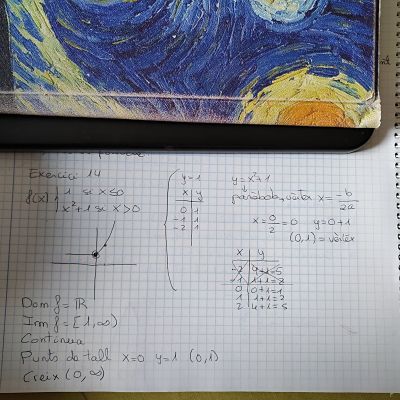 Exercici 14
f(x) { 1 si x≤0
x²+1 si x>0
y=1
x y
0 1
-1 1
-2 1
y=x²+1
parábola, vèrtex x= -b/2a
x= 0/2 =0 y=0+1
(0,1)=vèrtex
x y
-2 4+1=5
-1 1+1=2
0 0+1=1
1 1+1=2
2 4+1=5
Dom f= ℝ
Im f= [1,∞)
Continua
Punts de tall x=0 y=1 (0,1)
Creix (0,∞)